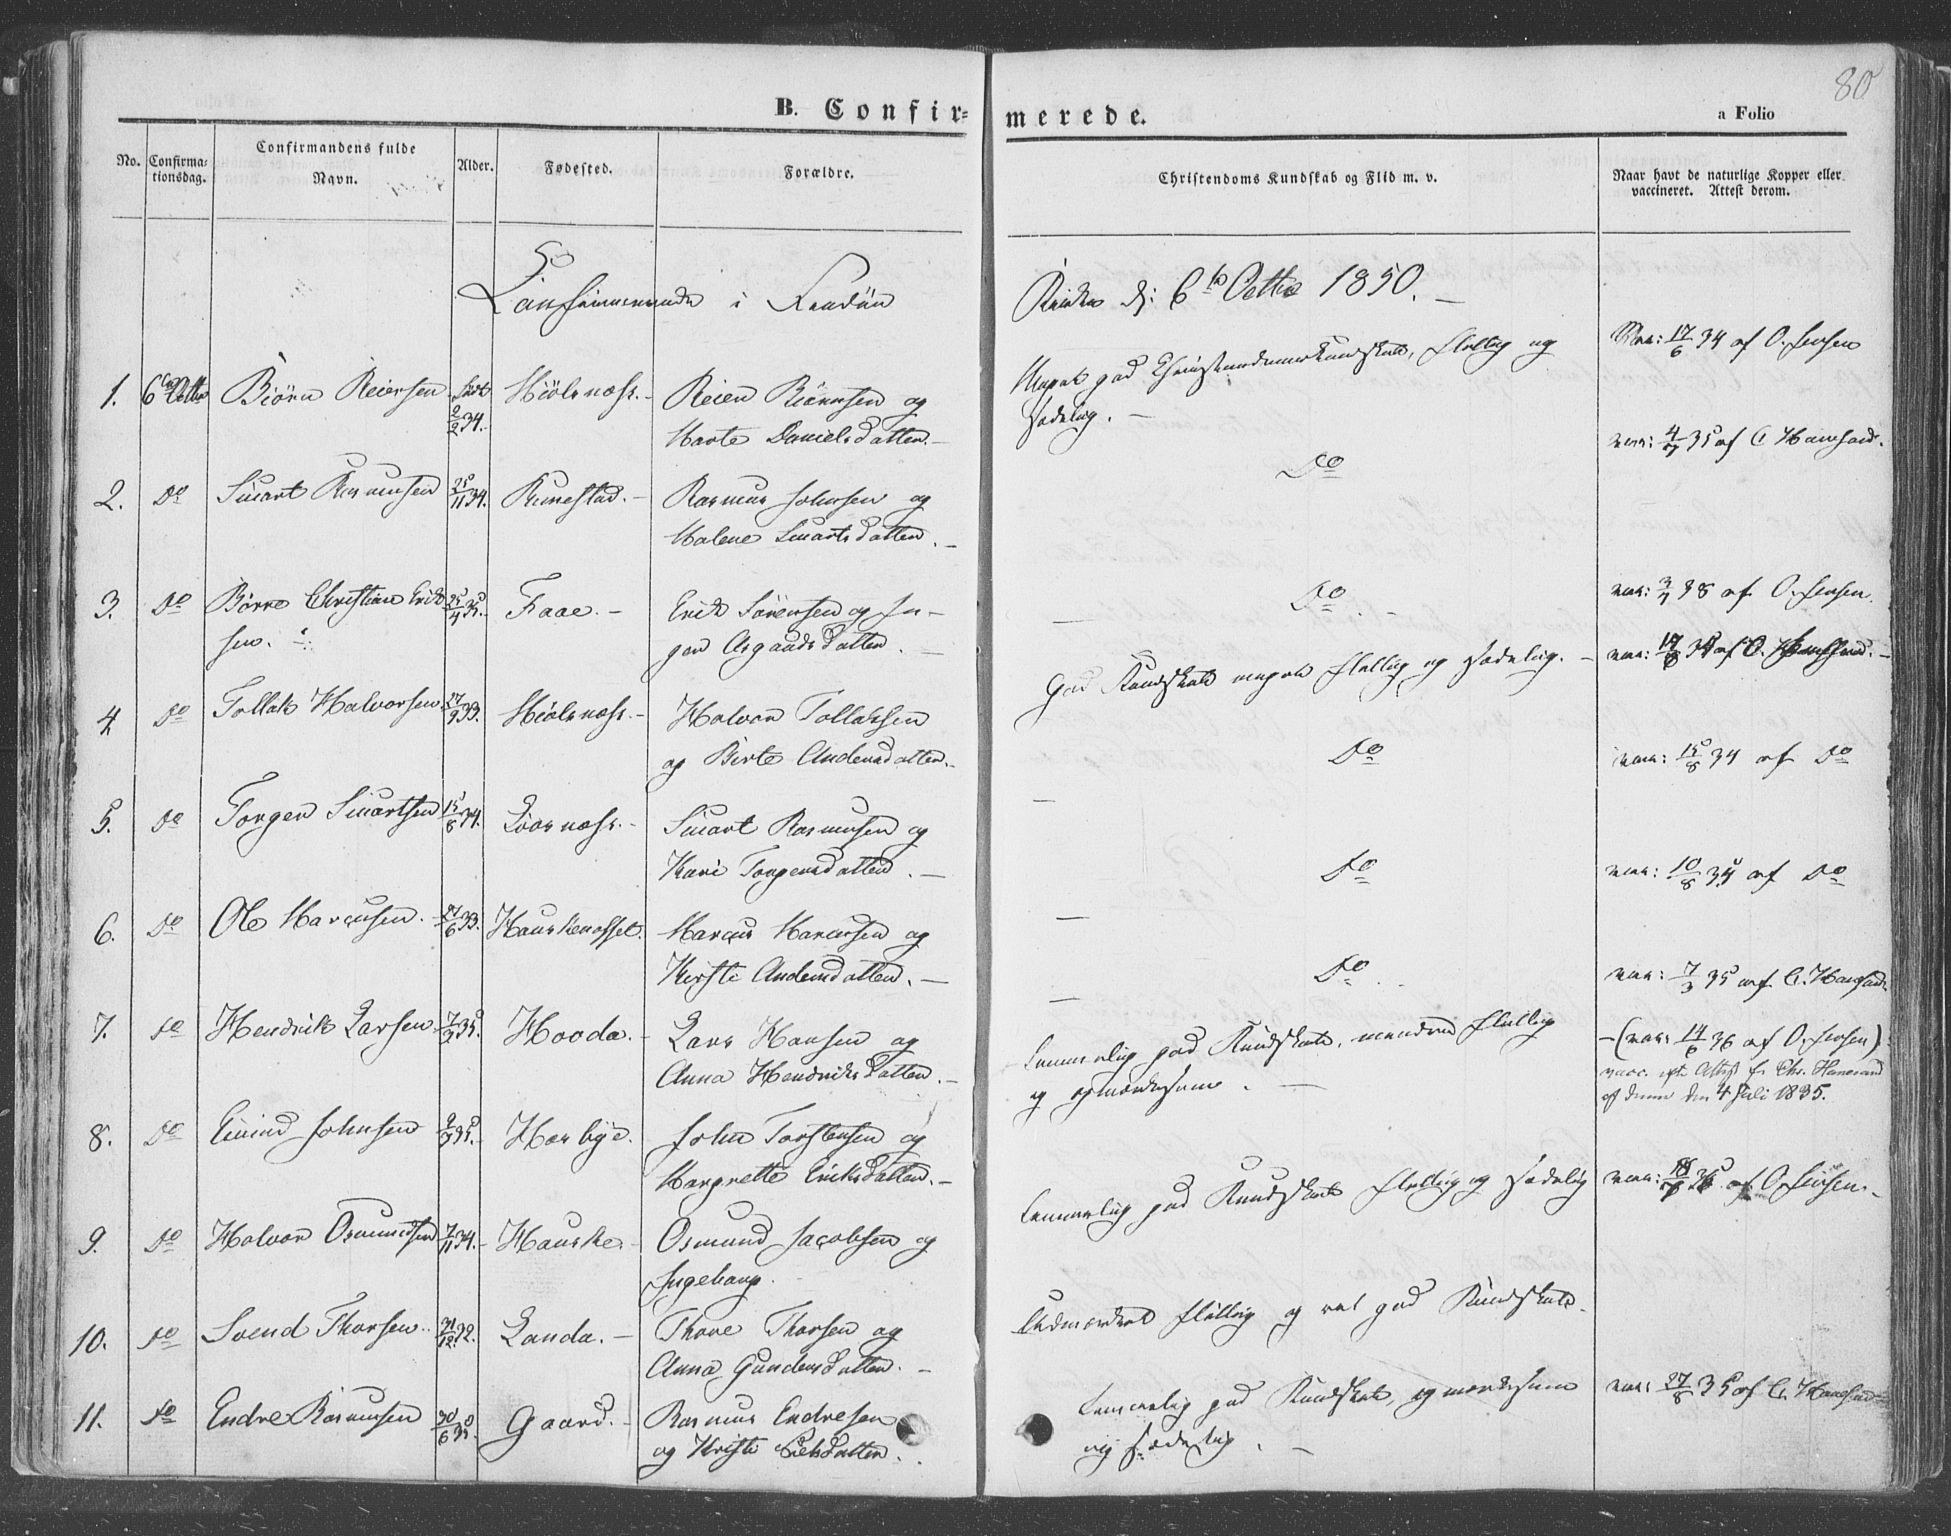 80
B. Confir=
merede.
a Folio
No.
Confirma=
tionsdag.
Confirmandens fulde
Navn.
Alder.
Fødested.
Forældre.
Christendoms Kundskab og Flid m. v.
Naar havt de naturlige Kopper eller
vaccineret. Attest derom.
i
Kirke d: 6te Octbr 1850.
1. 6te Octbr Biörn Reiersen født 2/2 34. Hiölsnæss. Reier Biörnsen og
Marte Danielsdatter.
Meget god Christendomskundskab, flittig og
sædelig.
Vac: 17/6 34 af O. Jensen
2. Do Sivart Rasmusen 25/11 34. Runestad. Rasmus Johnsen og
Malene Sivartsdatter.
Do
vac: 4/7 35 af C. Hanesand.
3. Do Börre Christian Erik
sen. 25/4 35. Faae. Erik Sörensen og In-
ger Asgautsdatter.
Do
vac: 3/7 38 af O. Jensen.
4 Do Tollak Halvorsen 17/9 33. Hiölsnæss. Halvor Tollaksen
og Birte Andersdatter.
God Kundskab meget flittig og sædelig.
5. Do Torger Sivartsen 15/8 34. Sivart Rasmusen og
Kari Torgersdatter.
Do
vac: 15/8 34 af Do
6. Do Ole Marcusen. 27/6 33. Hauskenesset. Marcus Marcusen og
Kirsti Andersdatter.
Do
vac: 10/8 34 af Do
7. Do Hendrik Larsen. 7/2 35. Hooda. Lars Hansen og
Anna Hendriksdatter.
Do
vac: 7/3 35 af C. Hanesand.
8. Do Eivind Johnsen 35. Hæsbye. John Torstensen og
Margrette Eriksdatter.
Temmelig god Kundskab, mindre flittig
og opmærksom.
(vac: 14/6 36 af O. Jensen)
vacc. eft. Attest fr. Chr. Hanesand
af denne den 4 Juli 1835.
9. Do Halvor Osmundsen 7/11 34. Hauske. Osmund Jacobsen og
Ingeborg.
Temmelig god Kundskab flittig og sædelig
af O. Jensen.
10. Do Svend Thorsen. 31/12 32. Landa. Thore Thorsen og
Anna Gundersdatter.
Udmærket flittig og ret god Kundskab.
11. Do Endre Rasmusen 30/6 35. Gaard. Rasmus Endresen
og Kristi
Temmelig god Kundskab, opmærksom
og sædelig.
vac: 27/8 35 af C. Hanesand